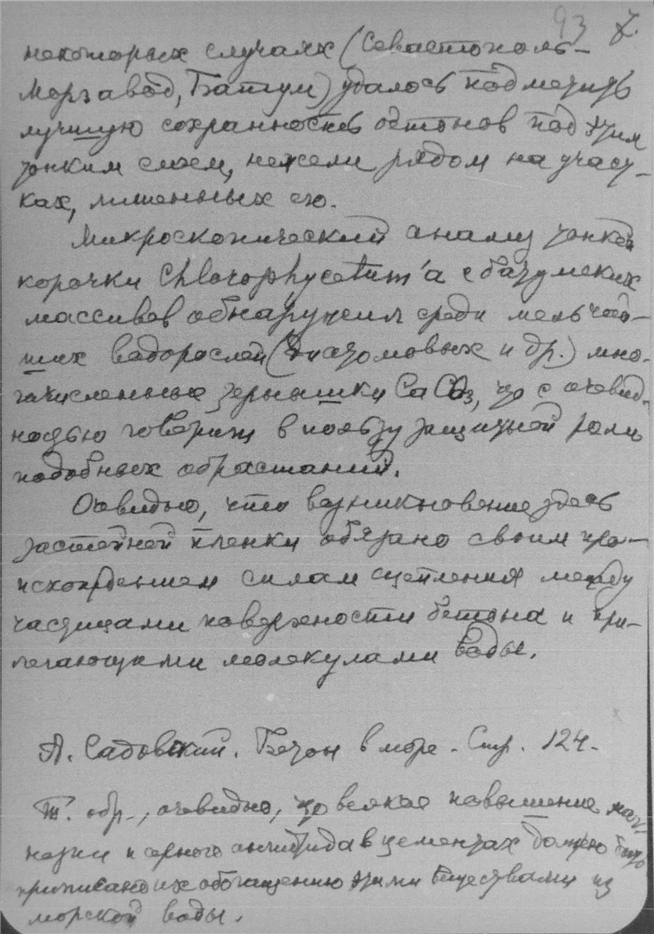 93 7.
некоторых случаях (Севастополь-
Морзавод, Батум) удалось подметить
лучшую сохранность бетонов под этим
тонким слоем, нежели рядом на участ-
ках, лишенных его.
Микроскопический анализ тонкой
корочки Chlorophycetum'а с батумских
массивов обнаружил среди мельчай-
ших водорослей (диатомовых и др.) мно-
гочисленные зернышки CaCO3, что с очевид-
ностью говорит в пользу защитной роли
подобных обрастаний.
Очевидно, что возникновение здесь
застойной пленки обязано своим про-
исхождением силам сцепления между
частицами поверхности бетона и при-
легающими молекулами воды.
А. Садовский. Бетон в море. Стр. 124.
Т. обр., очевидно, что всякое повышение маг-
незии и серного ангидрида в цементах должно быть
приписано их обогащению этими веществами из
морской воды.